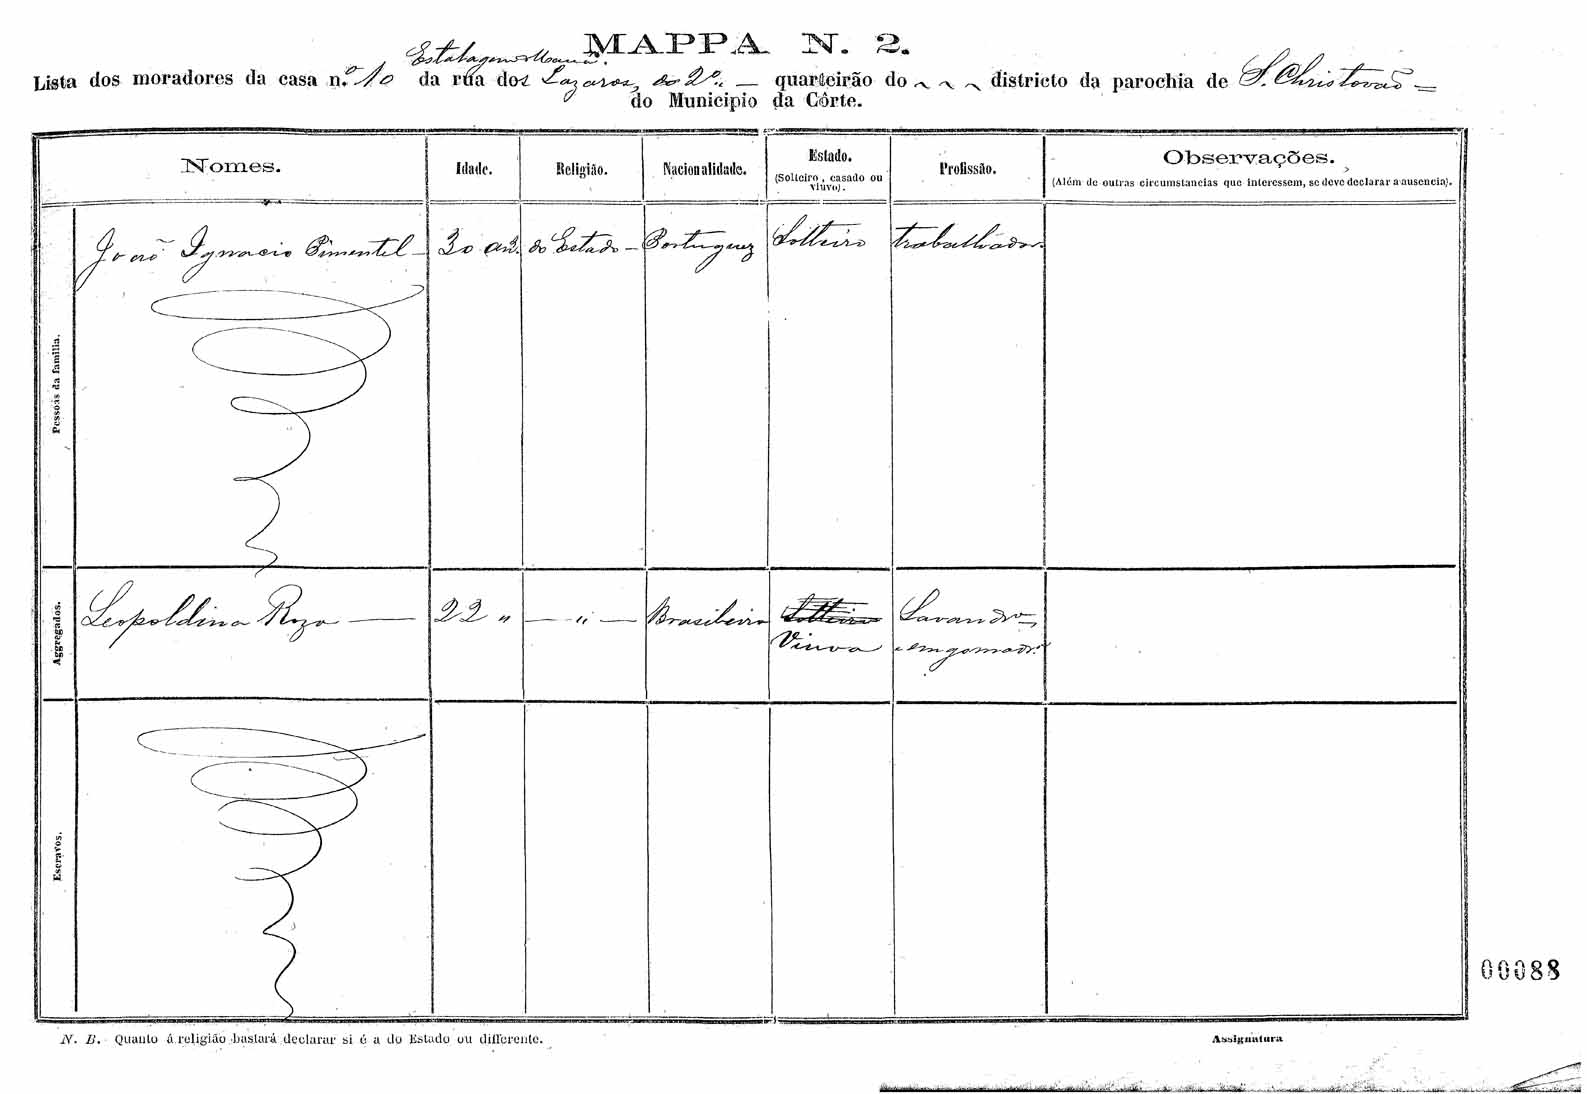 MAPPA N. 2.
Estalagem
Lista dos moradores da casa n.º 10 da rua dos Lazaros, do 2º — quarteirão do districto da parochia de S. Christovão
do Municipio da Côrte.
Nomes. Idade. Religião. Nacionalidade. Estado. (Solteiro, casado ou viuvo). Profissão. Observações. (Além de outras circumstancias que interessem, se deve declarar a ausencia).
Pessoas da familia.
João Ignacio Pimentel — 30 an.s do Estado — Portuguez Solteiro trabalhador.
Aggregados.
Leopoldina Roza — 22 " — " — Brasileira Solteira Lavandrª
Viuva e emgomadrª
Escravos.
N. B. Quanto á religião bastará declarar si é a do Estado ou differente.
Assignatura
00088